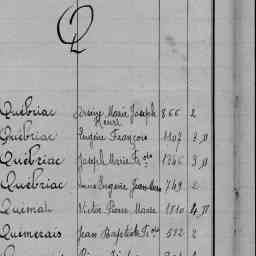 Q
Quebriac Marie Joseph Henri 866 2
Quebriac Eugène François 1107 3 II
Quebriac Joseph Marie Fr.ois 1346 3 II
Quebriac Eugène Jean 749 2
Quimat Victor Pierre Marie 1810 4 II
Quemerais Jean Baptiste Fr.ois 532 2